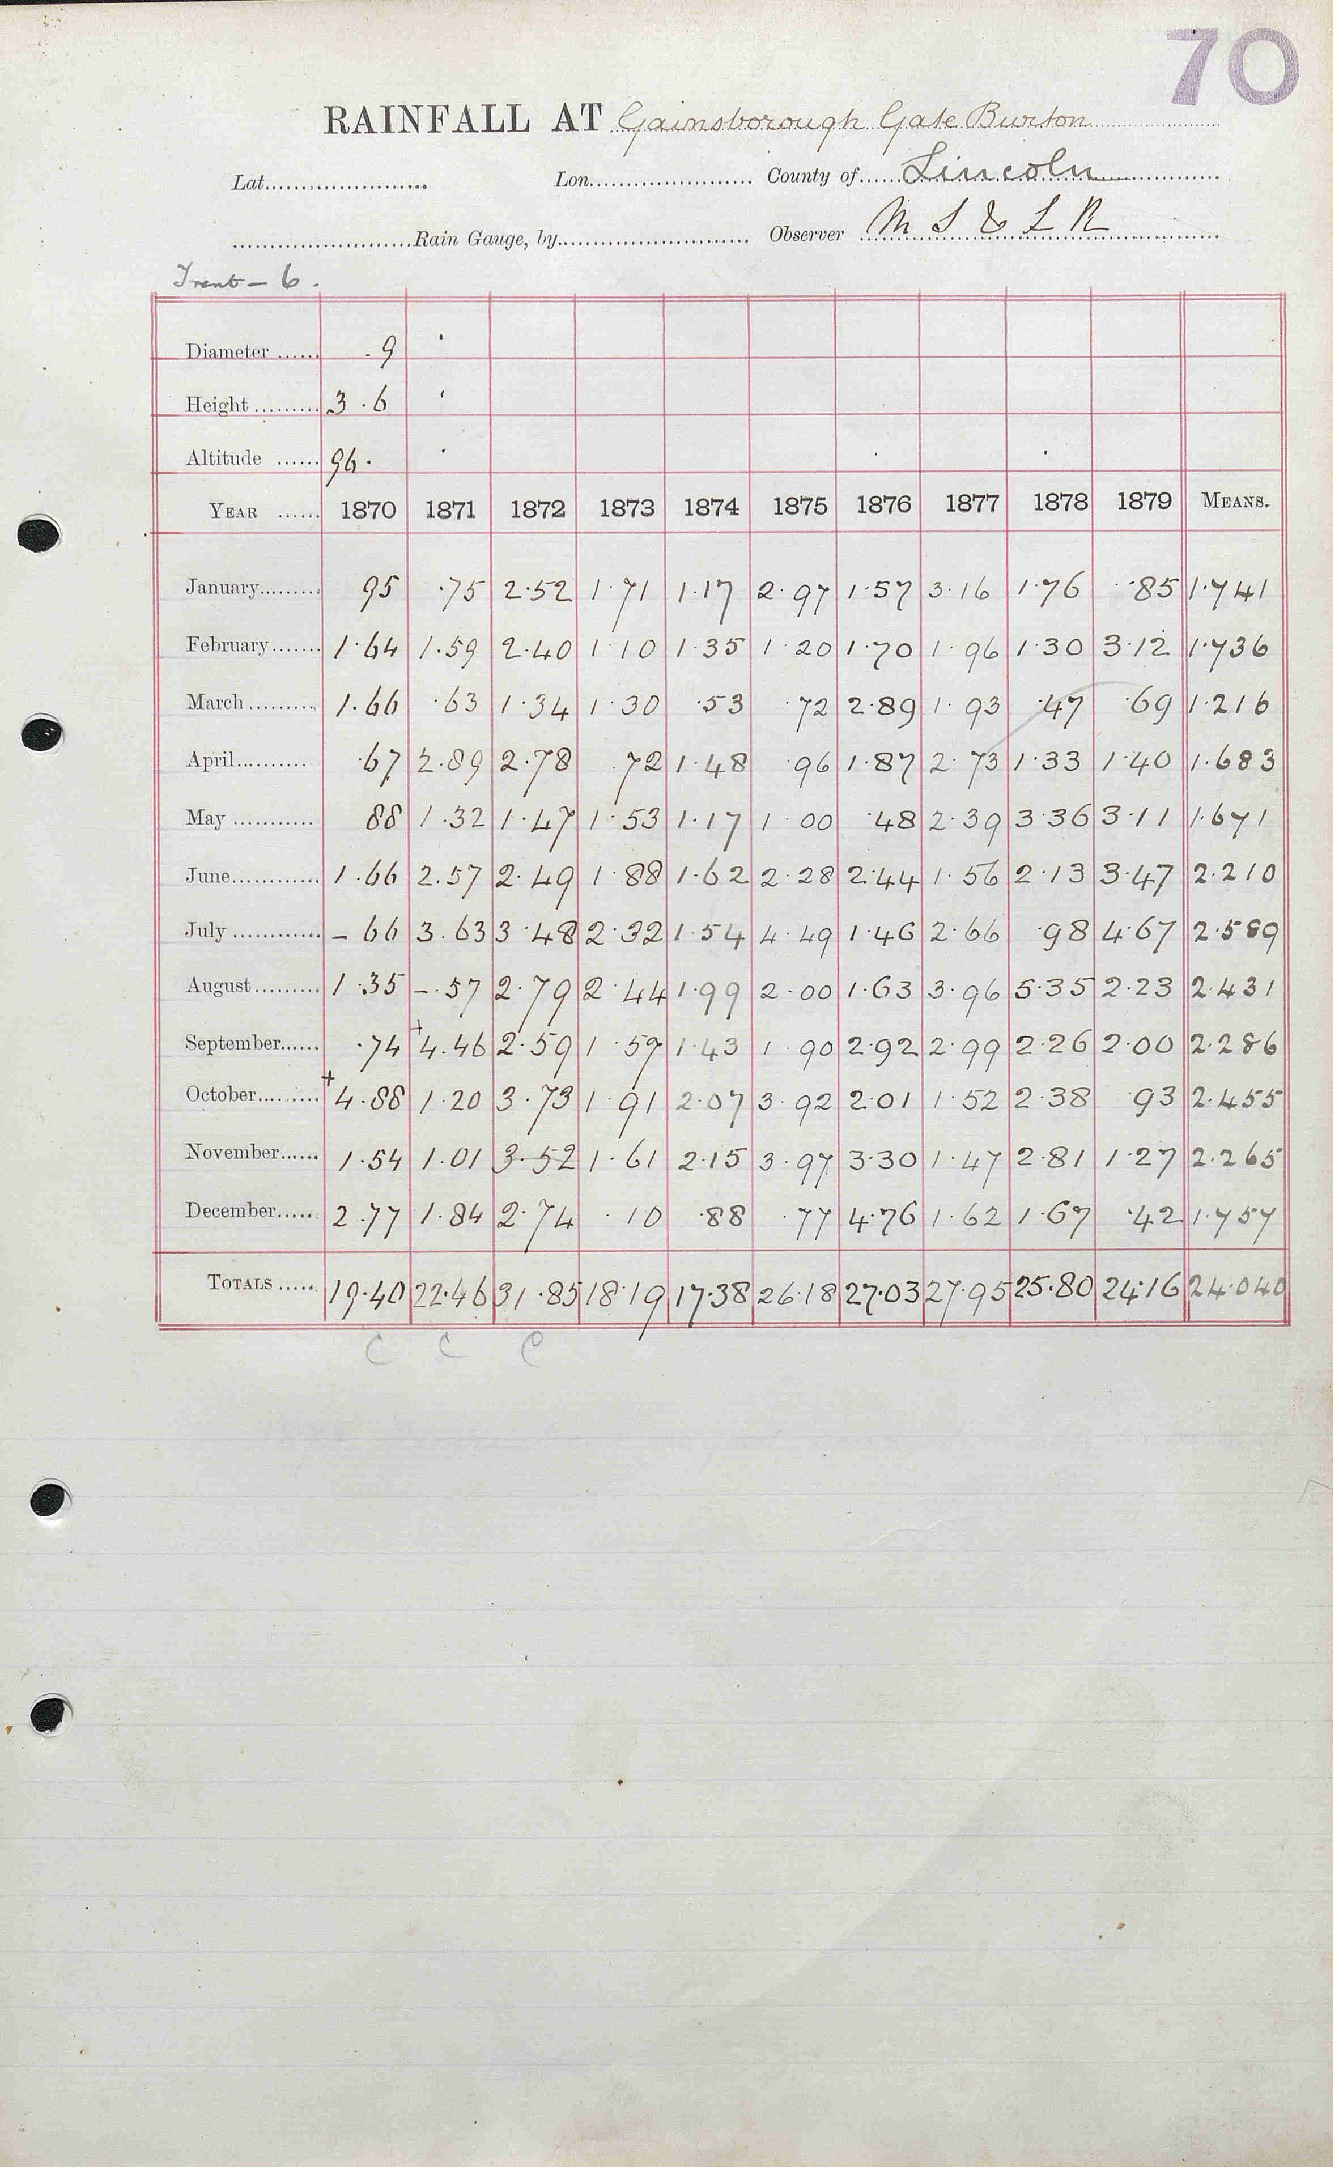 70
RAINFALL AT Gainsborough Gate Burton
Lat. Lon. County of Lincoln
Rain Gauge, by Observer M S & L R
Trent - 6.
Diameter ...... .9
Height ......... 3.6
Altitude ...... 96.
YEAR ...... 1870 1871 1872 1873 1874 1875 1876 1877 1878 1879 MEANS.
January......... 95 .75 2.52 1.71 1.17 2.97 1.57 3.16 1.76 .85 1.741
February....... 1.64 1.59 2.40 1.10 1.35 1.20 1.70 1.96 1.30 3.12 1.736
March .......... 1.66 .63 1.34 1.30 .53 72 2.89 1.93 .47 .69 1.216
April........... .67 2.89 2.78 .72 1.48 .96 1.87 2.73 1.33 1.40 1.683
May ........... 88 1.32 1.47 1.53 1.17 1 00 .48 2.39 3.36 3.11 1.671
June............. 1.66 2.57 2.49 1.88 1.62 2.28 2.44 1.56 2.13 3.47 2.210
July ............ - 66 3.63 3.48 2.32 1.54 4.49 1.46 2.66 .98 4.67 2.589
August......... 1.35 -.57 2.79 2.44 1.99 2.00 1.63 3.96 5.35 2.23 2.431
September...... .74 +4.46 2.59 1.59 1.43 1.90 2.92 2.99 2.26 2.00 2.286
October......... +4.88 1.20 3.73 1.91 2.07 3.92 2.01 1.52 2.38 .93 2.455
November...... 1.54 1.01 3.52 1.61 2.15 3.97 3.30 1.47 2.81 1.27 2.265
December...... 2.77 1.84 2.74 .10 .88 .77 4.76 1.62 1.67 .42 1.757
TOTALS ..... 19.40 22.46 31.85 18.19 17.38 26.18 27.03 27.95 25.80 24.16 24.040
C C C